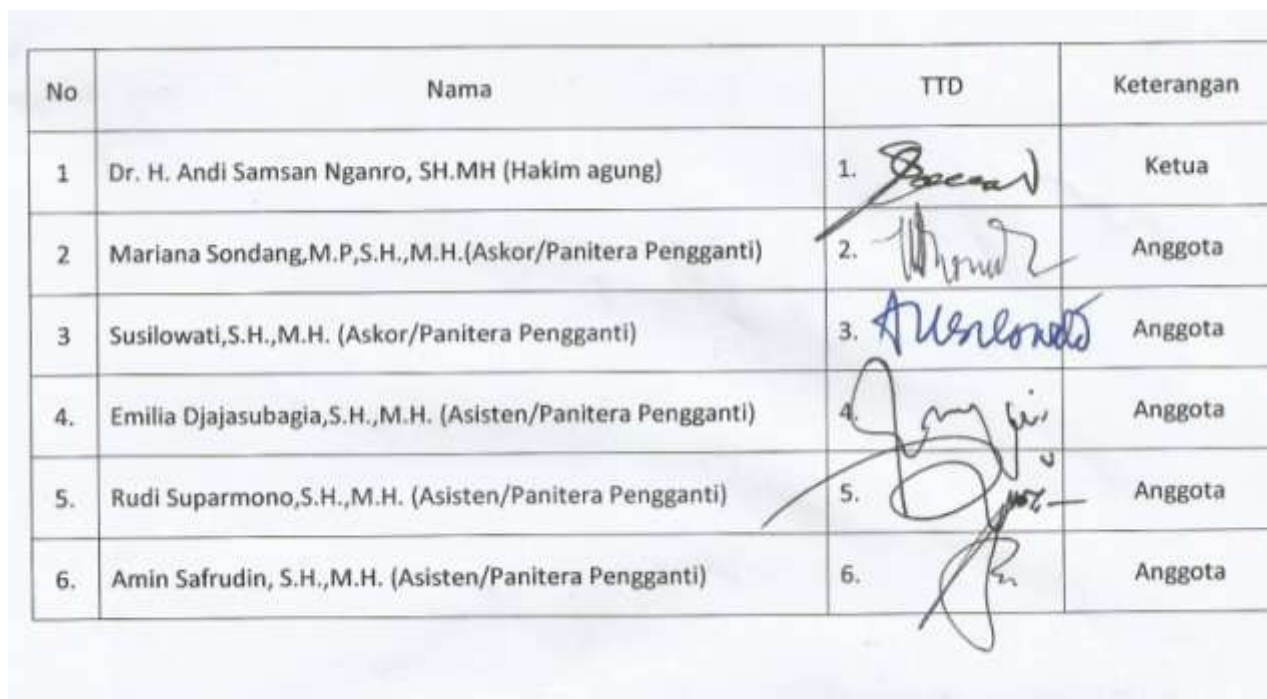 No Nama TTD Keterangan
1 Dr. H. Andi Samsan Nganro, SH.MH (Hakim agung) 1. Ketua
2 Mariana Sondang,M.P,S.H.,M.H.(Askor/Panitera Pengganti) 2. Anggota
3 Susilowati,S.H.,M.H. (Askor/Panitera Pengganti) 3. Anggota
4. Emilia Djajasubagia,S.H.,M.H. (Asisten/Panitera Pengganti) 4. Anggota
5. Rudi Suparmono,S.H.,M.H. (Asisten/Panitera Pengganti) 5. Anggota
6. Amin Safrudin, S.H.,M.H. (Asisten/Panitera Pengganti) 6. Anggota